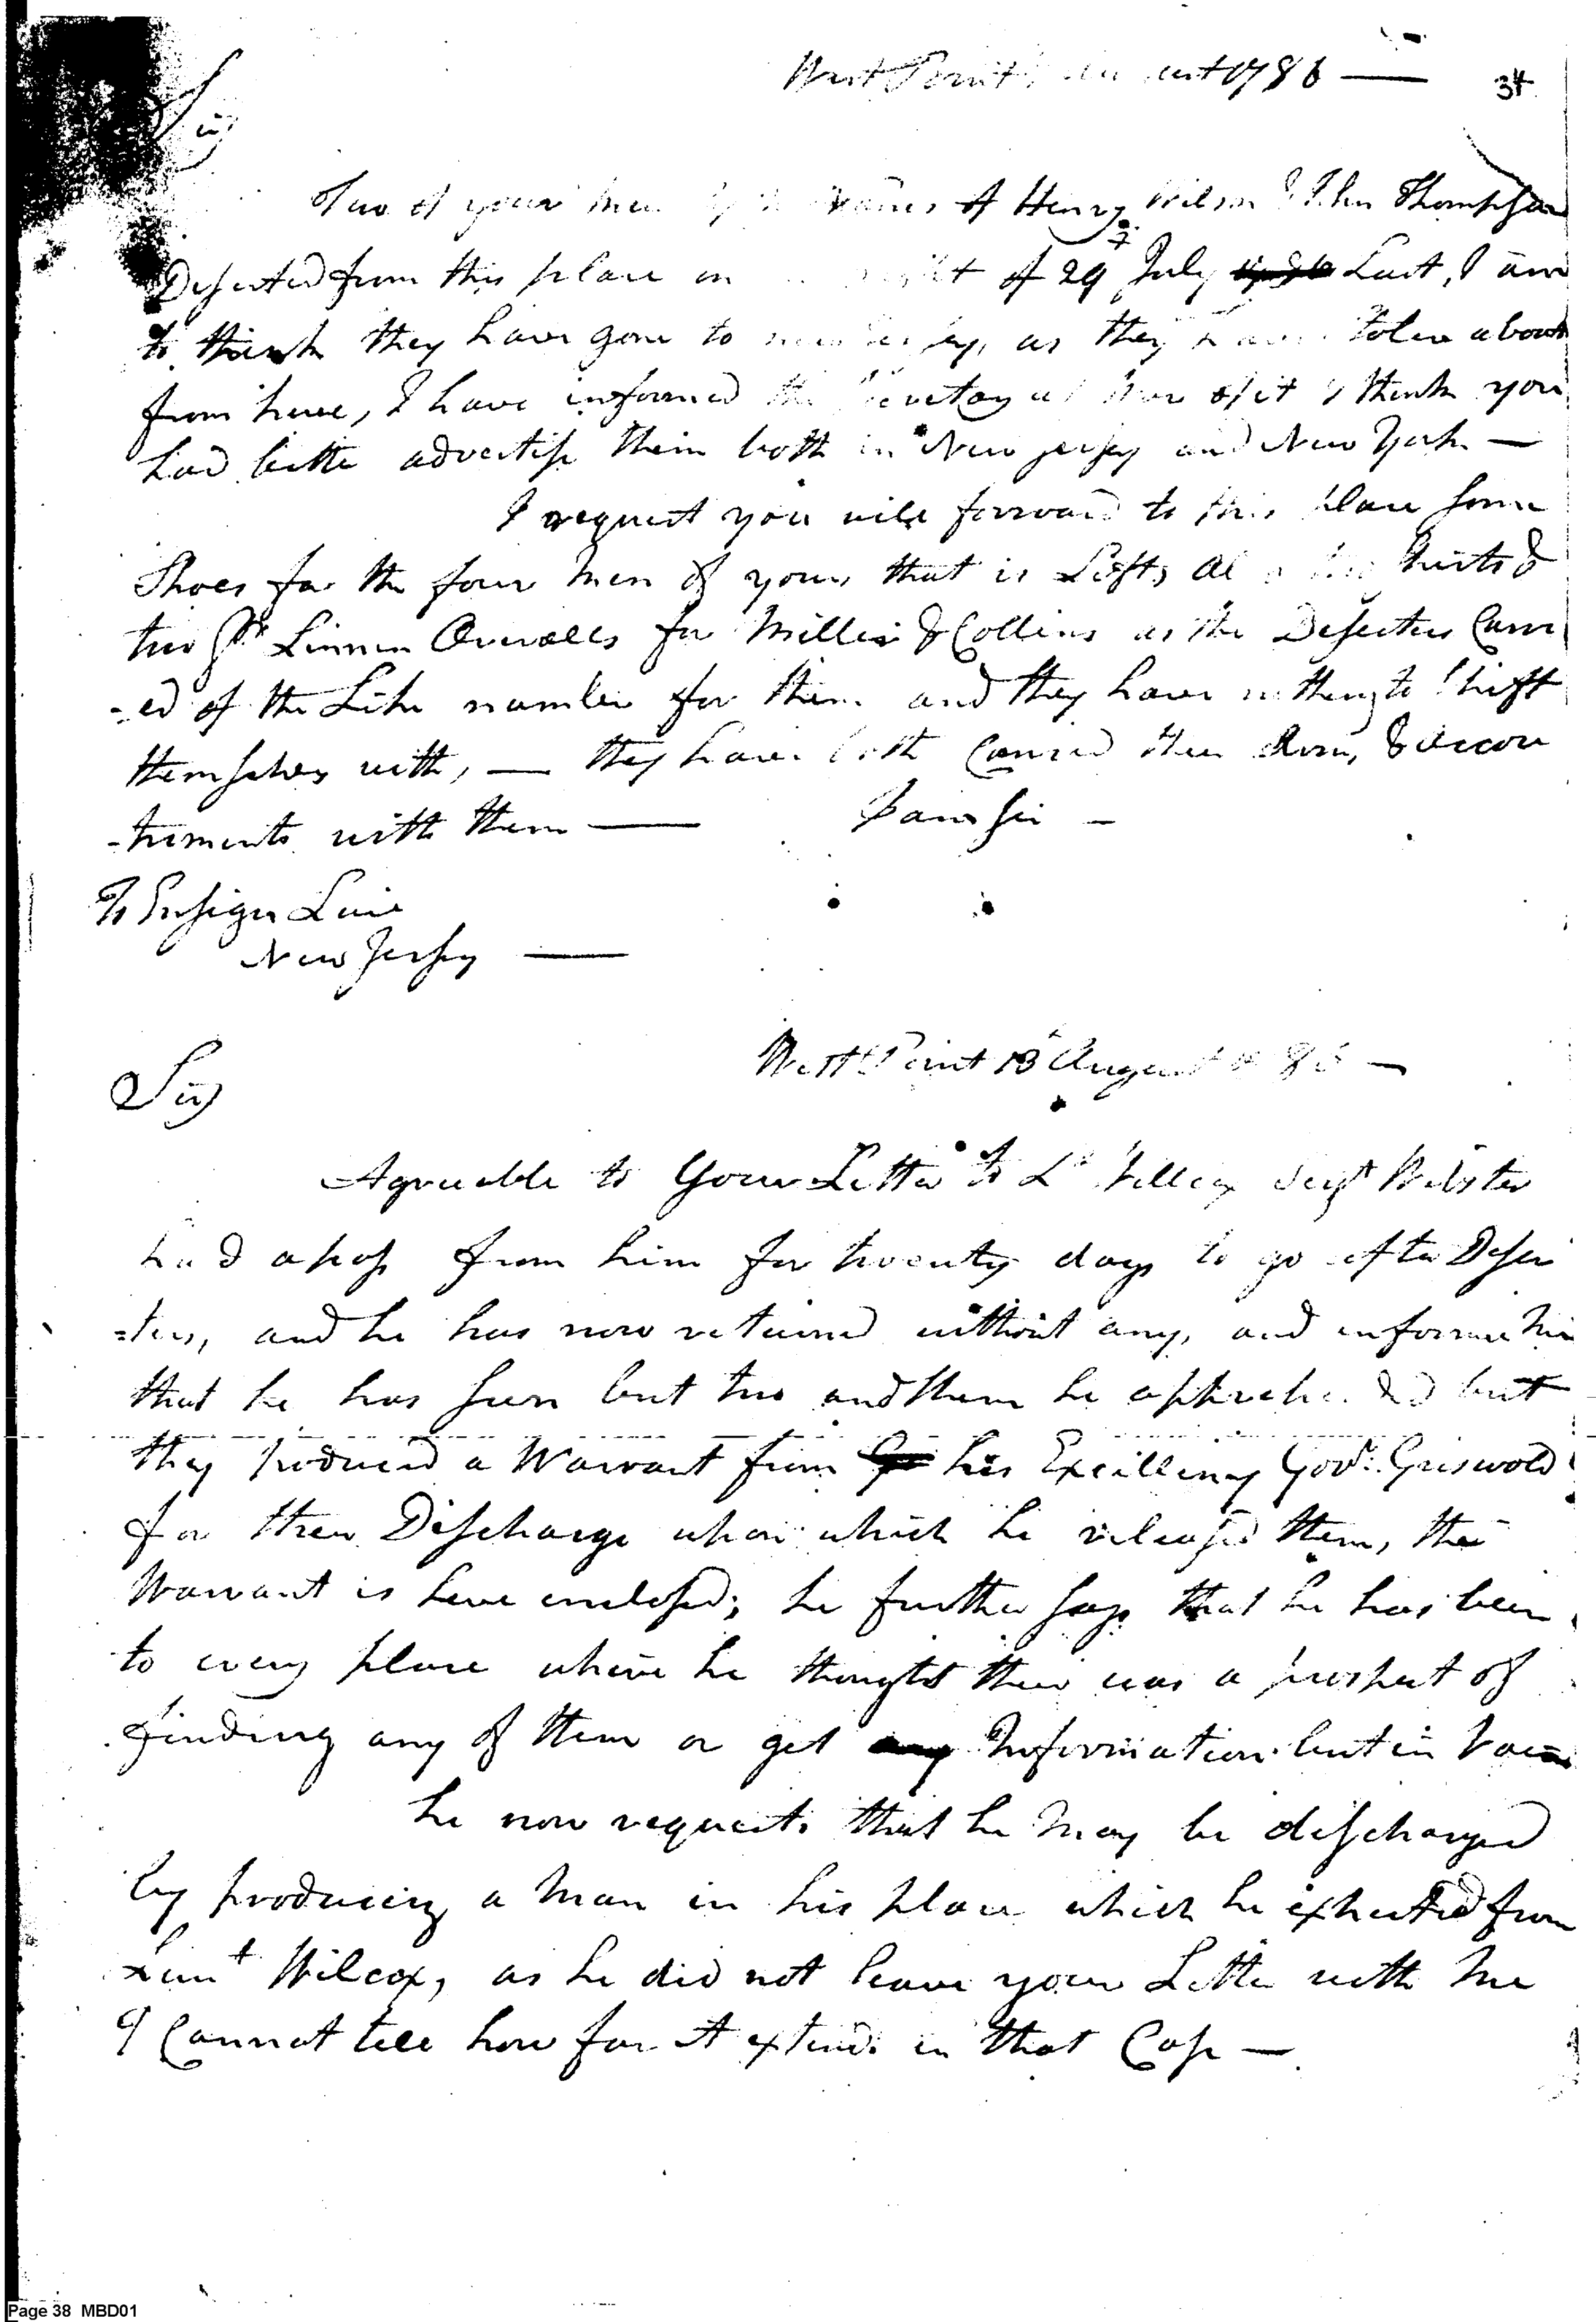 West Point 1786 —
34
Sir
Two of your men names of Henry Wilson & John Thompson
Deserted from this place on of 29 July Last, I am
to think they have gone to as they have stolen a boat
from here, I have informed the Secretary at War of it & think you
had bette advertise them both in New Jersey and New York —
I request you will forward to this place some
Shoes for the four men of yours that is Left, Shirts &
two Pr. Linnen Overalls for Miller & Collins as the Deserters Carri
-ed of the Like number for them and they have nothing to Shift
themselves with, — they have both Carried their Arms, & Accou
-trements with them —— I am Sir —
To Ensign
New Jersey ——
West Point 13 August —
Sir
Agreeable to Your Letter to Lt Willcox Sergt Webster
had a pass from him for twenty days to go after Deser
=ters, and he has now returned without any, and informs me
that he has seen but two and them he apprehended but
they produced a Warrant from his Excellency Govr. Griswold
for their Discharge upon which he released them, the
Warrant is here enclosed; he further says that he has been
to every place where he thought their was a prospect of
finding any of them or get Information but in Vain
he now requests that he may be discharged
by producing a man in his place which he expected from
Lieut Wilcox, as he did not leave your Letter with me
I Cannot tell how far it extends in that Case —
Page 38 MBD01